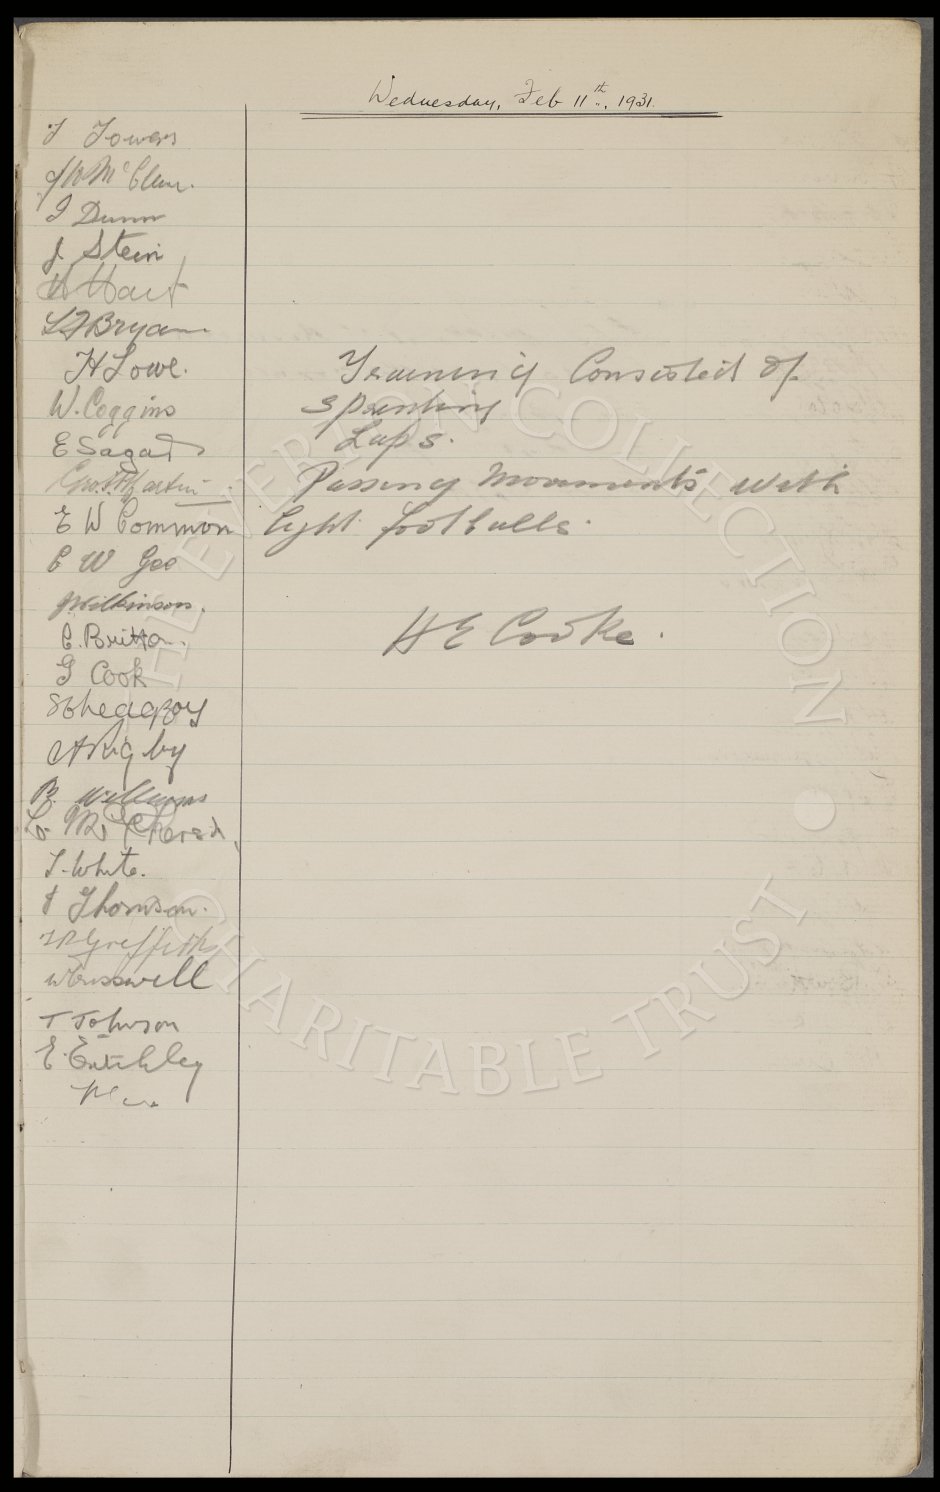 Wednesday, Feb 11th, 1931.
T Towers
J W McClure.
J Dunn
J. Stein
H Hart
L F Bryan
H Lowe.
W. Coggins
E Sagar
Geo. Martin
E W Common
C W Gee
J Wilkinson.
C. Britton.
G Cook
A Rigby
B. Williams
L. McPherson
T. White.
J Thomson.
T P Griffiths
W Cresswell
T Johnson
E. Critchley
Training Consisted of
Sprinting
Laps.
Passing Movements with
light footballs.
H E Cooke.
THE EVERTON COLLECTION •
CHARITABLE TRUST